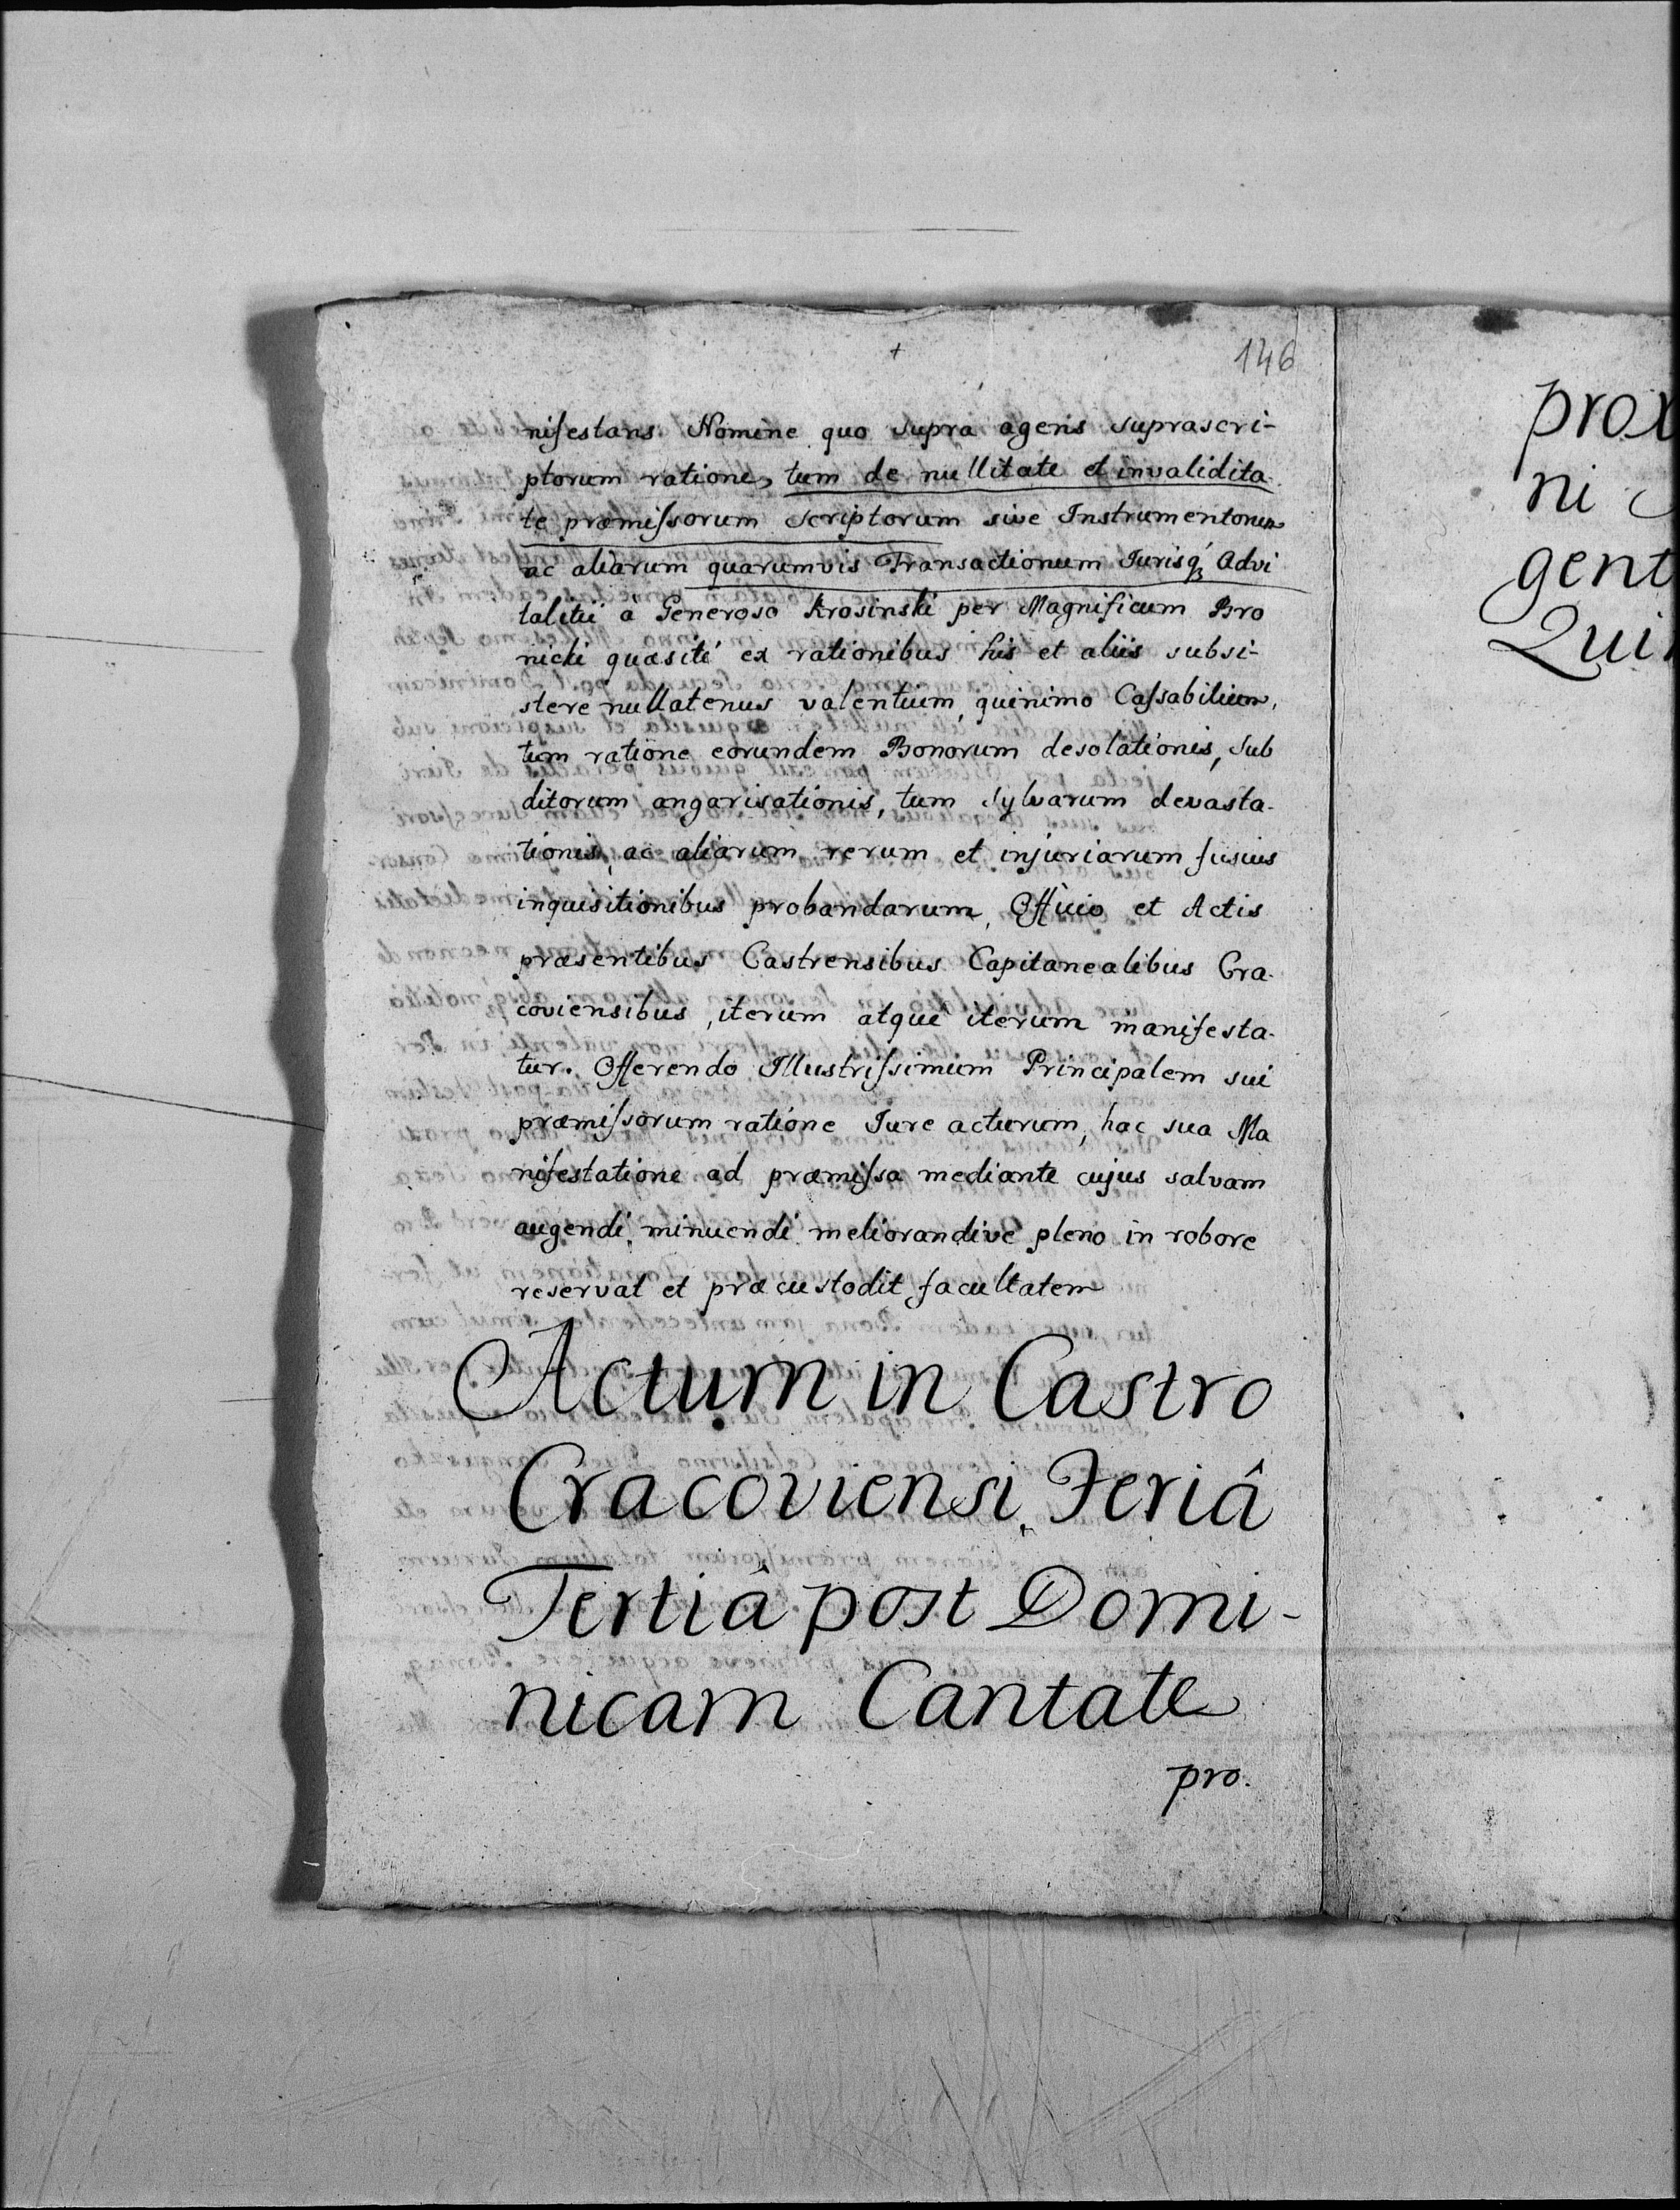 146
nifestans Nomine quo supra agens suprascri-
ptorum ratione, tum de nullitate et invalidita
te præmiſsorum Scriptorum sive Instrumentorum
ac aliarum quarumvis Transactionum Jurisq₃ Advi
talitii à Generoso Krosinski per Magnificum Bro
nicki quæsiti ex rationibus his et aliis subsi-
stere nullatenus valentium, quinimo Caſsabilium,
tum ratione eorundem Bonorum desolationis, Sub
ditorum angarisationis, tum Sylvarum devasta-
tionis, ac aliarum rerum et injuriarum fusius
inquisitionibus probandarum, Officio et Actis
præsentibus Castrensibus Capitanealibus Cra-
coviensibus, iterum atque iterum manifesta-
tur. Offerendo Illustriſsimum Principalem sui
præmiſsorum ratione Jure acturum, hac sua Ma
nifestatione ad præmiſsa mediante cujus salvam
augendi, minuendi meliorandive pleno in robore
reservat et præcustodit facultatem
Actum in Castro
Cracoviensi, Feriâ
Tertiâ post Domi-
nicam Cantate
pro.
prox
ni
gent
Qui